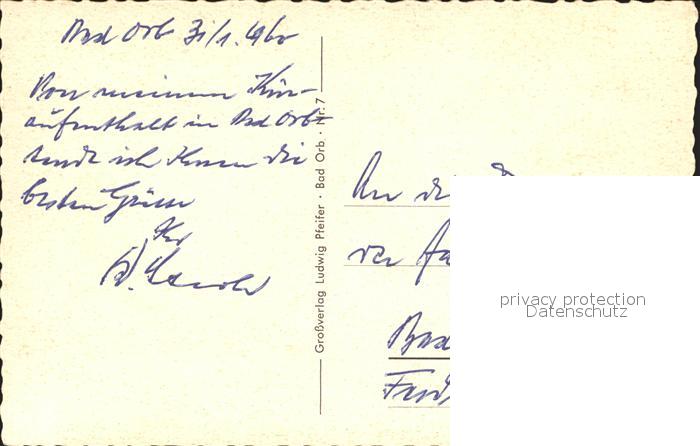 Bad Orb 31/1. 1960
Von meinem Kur-
aufenthalt in Bad Orb
sende ich Ihnen die
besten Grüsse
Ihr
Großverlag Ludwig Pfeifer · Bad Orb · Nr. 7
An di
der
Bad
privacy protection
Datenschutz